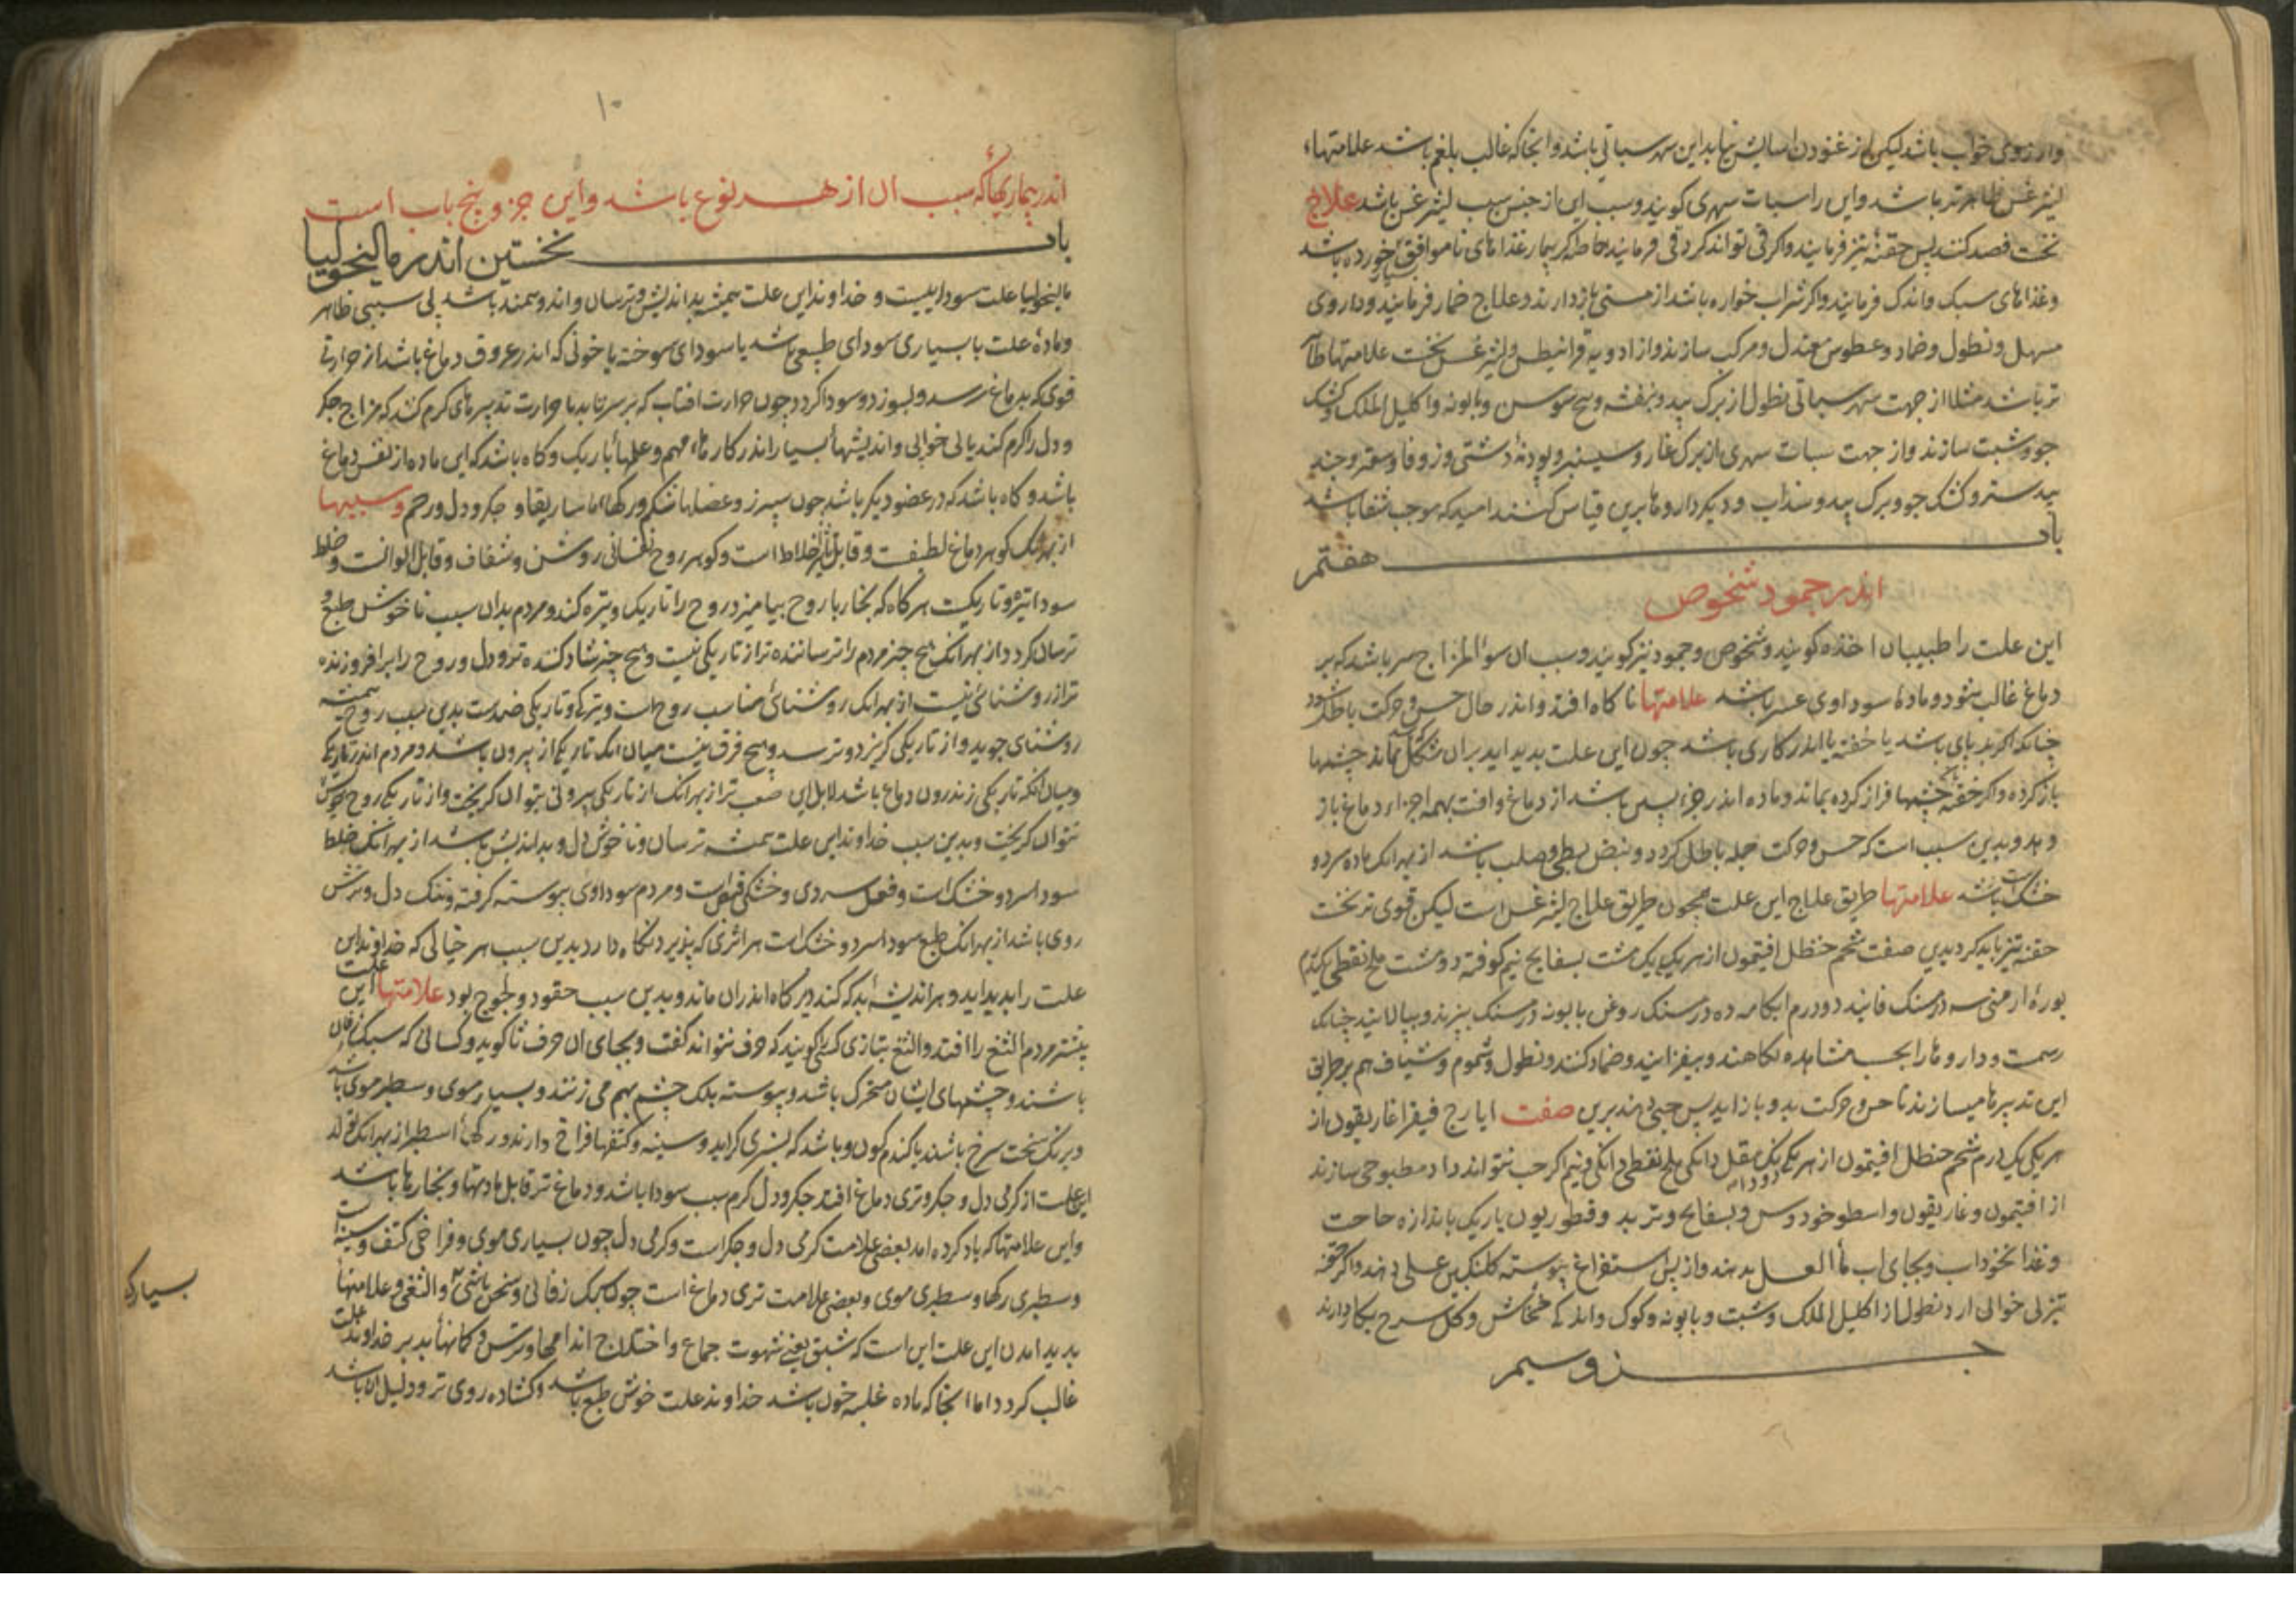 وارزوی خواب باشد لیکن از غنودن اسایش نیابد این سهر سباتی باشد وانجا که غالب بلغم باشد علامتهاء
لیثرغس ظاهرتر باشد واین را سبات سهری کویند وسبب این از جنس سبب لیثرغس باشد علاج
نخت فصد کنند پس حقنهٔ تیز فرمایند واکر قی تواند کرد قی فرمایند خاصه اکر بیمار غذاهای ناموافق بسیار خورده باشد
وغذاهای سبک واندک فرمایند واکر شراب خواره باشد از مستی بازدارند وعلاج خمار فرمایند وداروی
مسهل ونطول وضماد وعطوس معتدل ومرکب سازند واز ادویه قرانیطس ولیثرغس بحسب علامتها
تر باشد مثلا از جهت سهر سباتی نطول از برک بید وبنفشه وبیخ سوسن وبابونه واکلیل الملک وکشک
جو وشبت سازند واز جهت سبات سهری از برک غار وسیسنبر وپودنهٔ دشتی وزوفا وسعتر وجند
بیدستر وکشک جو وبرک بید وسذاب ودیکر داروها برین قیاس کنند امید که موجب شفا باشد
باب هفتم
اندر جمود شخوص
این علت را طبیبان اخذه کویند وشخوص وجمود نیز کویند وسبب ان سوالمزاج سر باشد که بر
دماغ غالب شود ومادهٔ سوداوی عسر باشد علامتها ناکاه افتد واندر حال حس وحرکت باطل شود
چنانکه اکر بر پای باشد یا خفته یا اندر کاری باشد چون این علت پدید اید بران شکل بماند چشمها
باز کرده واکر خفته چشمها فراز کرده بماند وماده اندر جزء پسین باشد از دماغ وافت بهمه اجزاء دماغ باز
دهد وبدین سبب است که حس وحرکت جمله باطل کردد ونبض بطی وصلب باشد از بهر انک ماده سرد و
خشک است باشد علامتها طریق علاج این علت همچون طریق علاج لیثرغس است لیکن قوی تر نخت
حقنه تیز باید کرد بدین صفت شحم حنظل افتیمون از هر یکی یک مشت بسفایج نیم کوفته دو مشت ملح نفطی یکدرم
بورهٔ ارمنی سه درمسنک فانید دو درم ابکامه ده درمسنک روغن بابونه درمسنک بپزند وبپالایند چنانک
رسمست وداروها را بحسب مشاهده بکاهند وبیفزایند وضماد کنند ونطول وشموم وشیاف هم بر طریق
این تدبیرها میسازند تا حس وحرکت بدو باز اید پس حبی دهند برین صفت ایارج فیقرا غاریقون از
هر یکی یک درم شحم حنظل افتیمون از هر یکی دو دانک مقل دانکی ملح نفطی دانکی ونیم اکر حب نتواند داد مطبوخی سازند
از افتیمون وغاریقون واسطوخودوس وبسفایج وتربد وقنطوریون باریک باندازه حاجت
وغذا نخوداب وبجای اب ماالعسل بدهند واز پس استفراغ پیوسته کلنکبین عسلی دهند واکر حقنه
تیز بی خوابی ارد نطول از اکلیل الملک وشبت وبابونه وکوک واندکی خشخاش وکل سرخ بکار دارند
جزو سیم
۱۰
اندر بیماریها که سبب ان از هر نوع باشد واین جزو پنج باب است
باب نخستین اندر مالیخولیا
مالیخولیا علت سوداییست وخداوند این علت همیشه بداندیش وترسان واندوهمند باشد بی سببی ظاهر
ومادهٔ علت یا بسیاری سودای طبیعی باشد یا سودای سوخته یا خونی که اندر عروق دماغ باشد از حرارتی
قوی که بدماغ رسد وبسوزد وسودا کردد چون حرارت افتاب که بر سر تابد یا حرارت تدبیرهای کرم کند که مزاج جکر
ودل را کرم کند یا بی خوابی واندیشهاٴ بسیار اندر کارهاء مهم وعلمهاٴ باریک وکاه باشد که این ماده از نفس دماغ
باشد وکاه باشد که در عضو دیکر باشد چون سپرز وعضلها شکم ورکها اما ساریقا وجکر ودل ورحم وسببها
از بهر انک کوهر دماغ لطیفست وقابل تاثیر اخلاط است وکوهر روح نفسانی روشن وشفاف وقابل الوانست وخلط
سودا تیره وتاریکست هرکاه که بخار با روح بیامیزد روح را تاریک وتیره کند ومردم بدان سبب ناخوش طبع و
ترسان کردد از بهر انک هیچ چیز مردم را ترساننده تر از تاریکی نیست وهیچ چیز شاد کننده تر ودل وروح را برافروزنده
تر از روشنائی نیست از بهر انک روشنائی مناسب روح است وتیرکی وتاریکی ضد است بدین سبب روح همیشه
روشنای جوید واز تاریکی کریزد وترسد وهیچ فرق نیست میان انک تاریکی از بیرون باشد ومردم اندر تاریکی
ومیان انکه تاریکی ز اندرون دماغ باشد لابل این صعب تر از بهر انک از تاریکی بیرونی بتوان کریخت واز تاریکی روح خویش
نتوان کریخت وبدین سبب خداوند این علت همیشه ترسان وناخوش دل وبداندیش باشد از بهر انک خلط
سودا سرد وخشک است وفعل سردی وخشکی قبض است ومردم سوداوی پیوسته کرفته وتنک دل وترش
روی باشد از بهر انک طبع سودا سرد وخشک است هر اثری که پذیرد نکاه دارد بدین سبب هر خیالی که خداوند این علت
علت را پدید اید وهر اندیشهٔ بد که کند دیرکاه اندران ماند وبدین سبب حقود ولجوج بود علامتها این
بیشتر مردم الثغ را افتد والثغ بتازی کسی را کویند که حرف نتواند کفت وبجای ان حرف ثا کوید وکسانی که سبک زفان
باشند وچشمهای ایشان متحرک باشد وپیوسته پلک چشم بهم می زنند وبسیار موی وسطبر موی باشند
وبرنک سخت سرخ باشند یا کندم کون وباشد که بسبزی کراید وسینه وکتفها فراخ دارند ورکهاٴ اسطبر از بهر انک تولد
این علت از کرمی دل وجکر وتری دماغ افتد جکر ودل کرم سبب سودا باشد ودماغ تر قابل مادتها وبخارها باشد
واین علامتها که یاد کرده امد بعضی علامت کرمی دل وجکر است وکرمی دل چون بسیاری موی وفراخی کتف وسینه است
وسطبری رکها وسطبری موی وبعضی علامت تری دماغ است چون سبک زفانی والثغی وعلامتهاٴ
پدید امدن این علت این است که شبق یعنی شهوت جماع واختلاج اندامها وترس وکمانهاٴ بد بر خداوند علت
غالب کردد اما انجا که ماده غلبه خون باشد خداوند علت خوش طبع باشد وکشاده روی تر ودلیل ان باشد
بسیار که